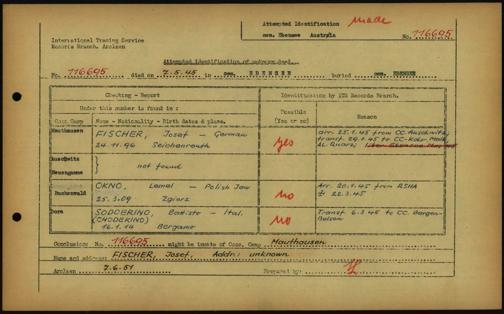 Attempted Identification made
cem. Ebensee Austria No. 116695
International Tracing Service
Records Branch, Arolsen
Attempted identification of unknown dead.
No. 116695 died on 7.5.45 in cem. EBENSEE buried cem. EBENSEE
Checking - Report
Identification by ITS Records Branch.
Under this number is found in :
Possible (Yes or no)
Reason
Conc Camp Name - Nationality - Birth dates & place.
Mauthausen FISCHER, Josef - German yes arr. 25.1.45 from CC-Auschwitz,
24.11.96 transf. 29.1.45 to CC-Kdo Melk
Auschwitz
not found
OKNO, Lemel - Polish Jew no Arr. 20.1.45 from RSHA
Buchenwald
25.3.09 Zgierz 22.3.45
Dora Batiste - Ital. no Transf. 6.3.45 to CC. Bergen-
Belsen
16.1.14 Bergamo
Conclusion: No. 116695 might be inmate of Conc. Camp Mauthausen
Name and address: FISCHER, Josef, Addr: unknown
Arolsen 7.6.51 Prepared by: